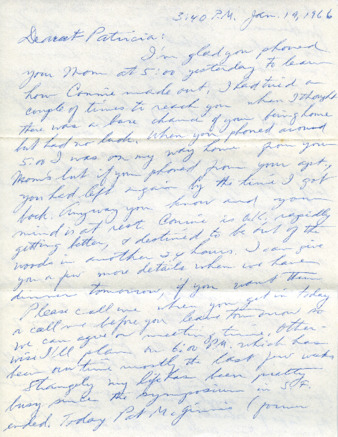 5:40 P.M. Jan. 19, 1966
Dearest Patricia:
I'm glad you phoned
your Mom at 5:00 yesterday to learn
how Connie made out, I had tried a
couple of times to reach you when I thought
there was a bare chance of your being home
but had no luck. When you phoned around
5:00 I was on my way home from your
Mom's but if you phoned from your apt,
you had left again by the time I got
back. Anyway you know and your
mind is at rest Connie is O.K., rapidly
getting better, & destined to be out of the
woods in another 24 hours. I can give
you a few more details when we have
dinner tomorrow, if you want them
Please call me when you get in today
or call me before you leave tomorrow so
we can agree on meeting time, Other-
wise I'll plan on 6:00 P.M. which has
been our time mostly the last few weeks
Strangely my life has been pretty
busy since the symposium in S.F.
ended. Today Pat McGinnis (former